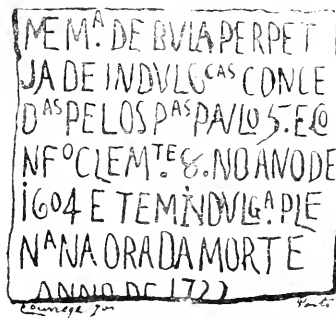 MEMᴬ. DE BVLA PERPET
JA DE INDVLGᶜᵃˢ CONCE
Dᴬˢ PELOS Pᴬˢ PAVLO 5. E CO
NFᴼ CLEMᵀᴱ. 8. NO ANO DE
1604 E TEM INDVLGᴬ. PLE
NᴬNA ORA DA MORTE
ANNO DE 1722
Porto